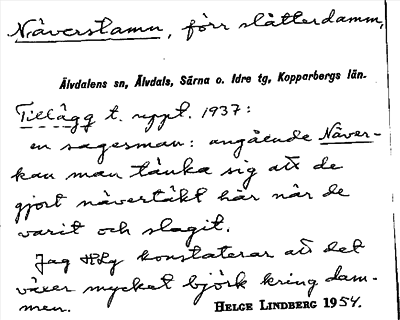 Näverstamn, förr slåtterdamm,
Älvdalens sn, Älvdals, Särna o. Idre tg, Kopparbergs län.
Tillägg t. uppt. 1937:
en sagesman: angående Näver-
kan man tänka sig att de
gjort nävertäkt här när de
varit och slagit.
Jag HLg konstaterar att det
växer mycket björk kring dam-
men.
HELGE LINDBERG 1954.